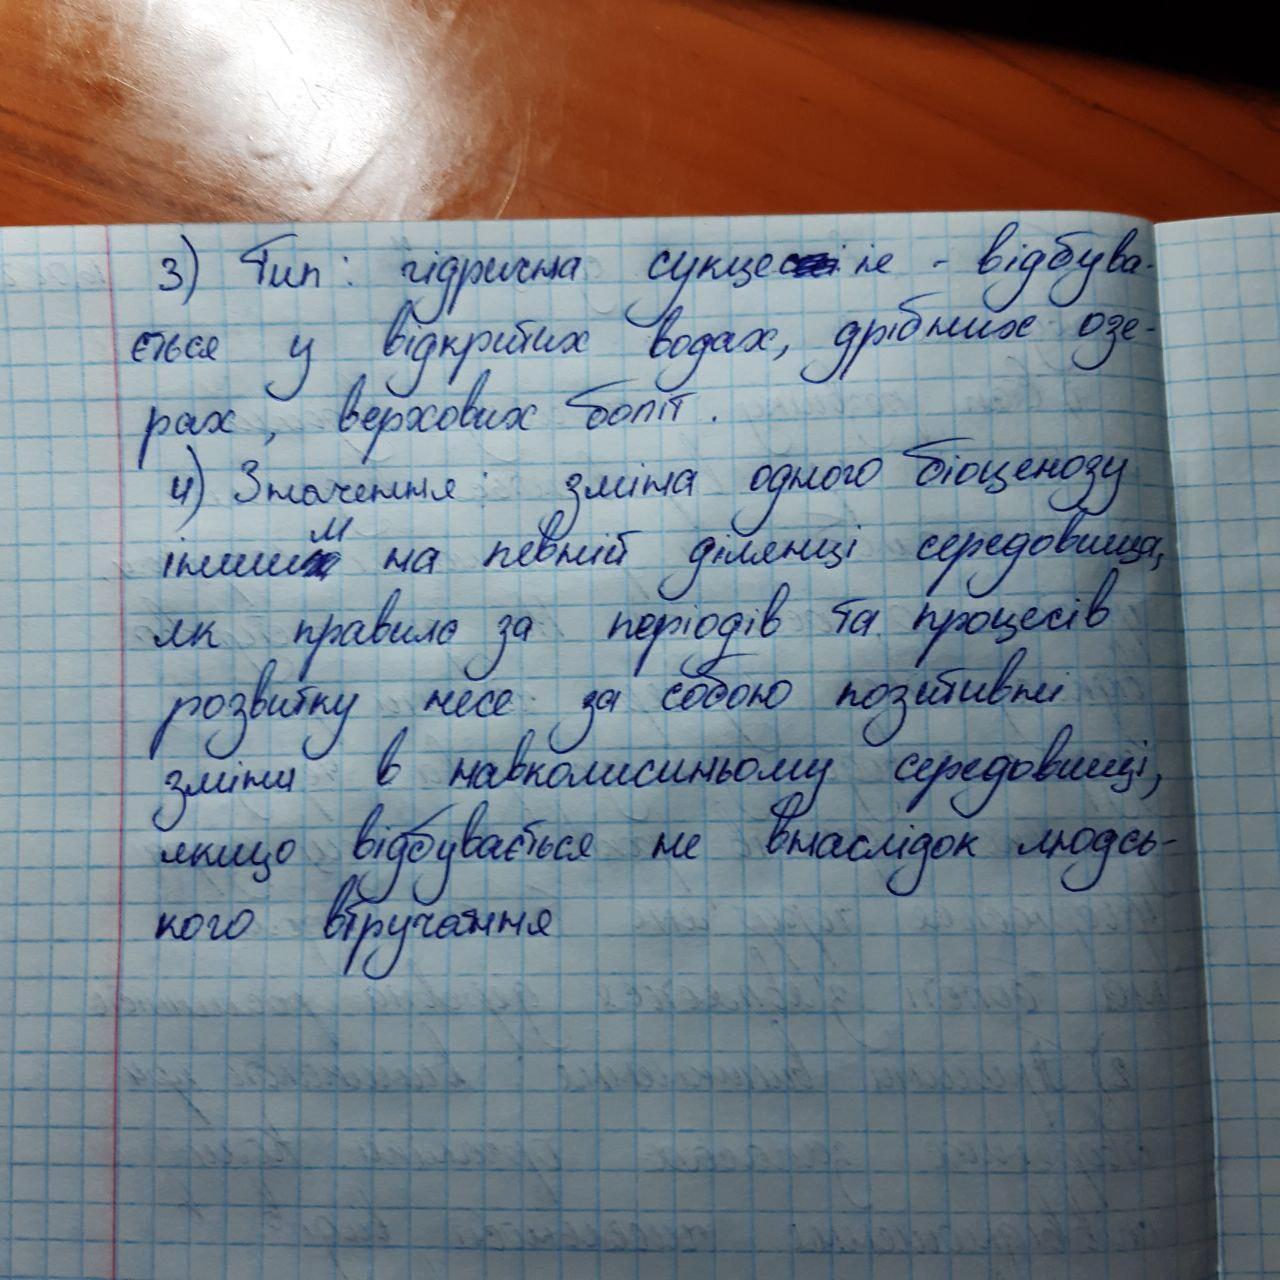 3) Тип: гідрична сукцесіє - відбува-
ється у відкритих водах, дрібних озе-
рах, верхових боліт.
4) Значення: зміна одного біоценозу
іншим на певній ділянці середовища,
як правило за періодів та процесів
розвитку несе за собою позитивні
зміни в навколишньому середовищі,
якщо відбувається не внаслідок людсь-
кого втручання